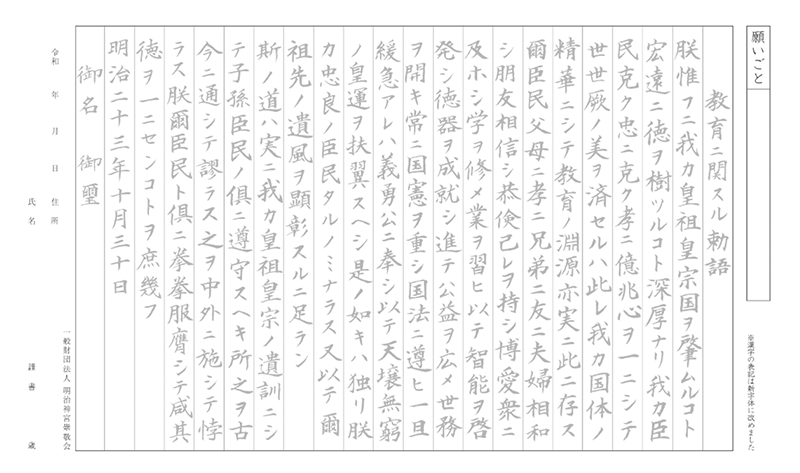 願いごと
※漢字の表記は新字体に改めました
教育ニ関スル勅語
朕惟フニ我カ皇祖皇宗国ヲ肇ムルコト
宏遠ニ徳ヲ樹ツルコト深厚ナリ我カ臣
民克ク忠ニ克ク孝ニ億兆心ヲ一ニシテ
世世厥ノ美ヲ済セルハ此レ我カ国体ノ
精華ニシテ教育ノ淵源亦実ニ此ニ存ス
爾臣民父母ニ孝ニ兄弟ニ友ニ夫婦相和
シ朋友相信シ恭倹己レヲ持シ博愛衆ニ
及ホシ学ヲ修メ業ヲ習ヒ以テ智能ヲ啓
発シ徳器ヲ成就シ進テ公益ヲ広メ世務
ヲ開キ常ニ国憲ヲ重シ国法ニ遵ヒ一旦
緩急アレハ義勇公ニ奉シ以テ天壌無窮
ノ皇運ヲ扶翼スヘシ是ノ如キハ独リ朕
カ忠良ノ臣民タルノミナラス又以テ爾
祖先ノ遺風ヲ顕彰スルニ足ラン
斯ノ道ハ実ニ我カ皇祖皇宗ノ遺訓ニシ
テ子孫臣民ノ俱ニ遵守スヘキ所之ヲ古
今ニ通シテ謬ラス之ヲ中外ニ施シテ悖
ラス朕爾臣民ト俱ニ拳拳服膺シテ咸其
徳ヲ一ニセンコトヲ庶幾フ
明治二十三年十月三十日
御名 御璽
一般財団法人 明治神宮崇敬会
令和 年 月 日 住所
氏名
謹書 歳